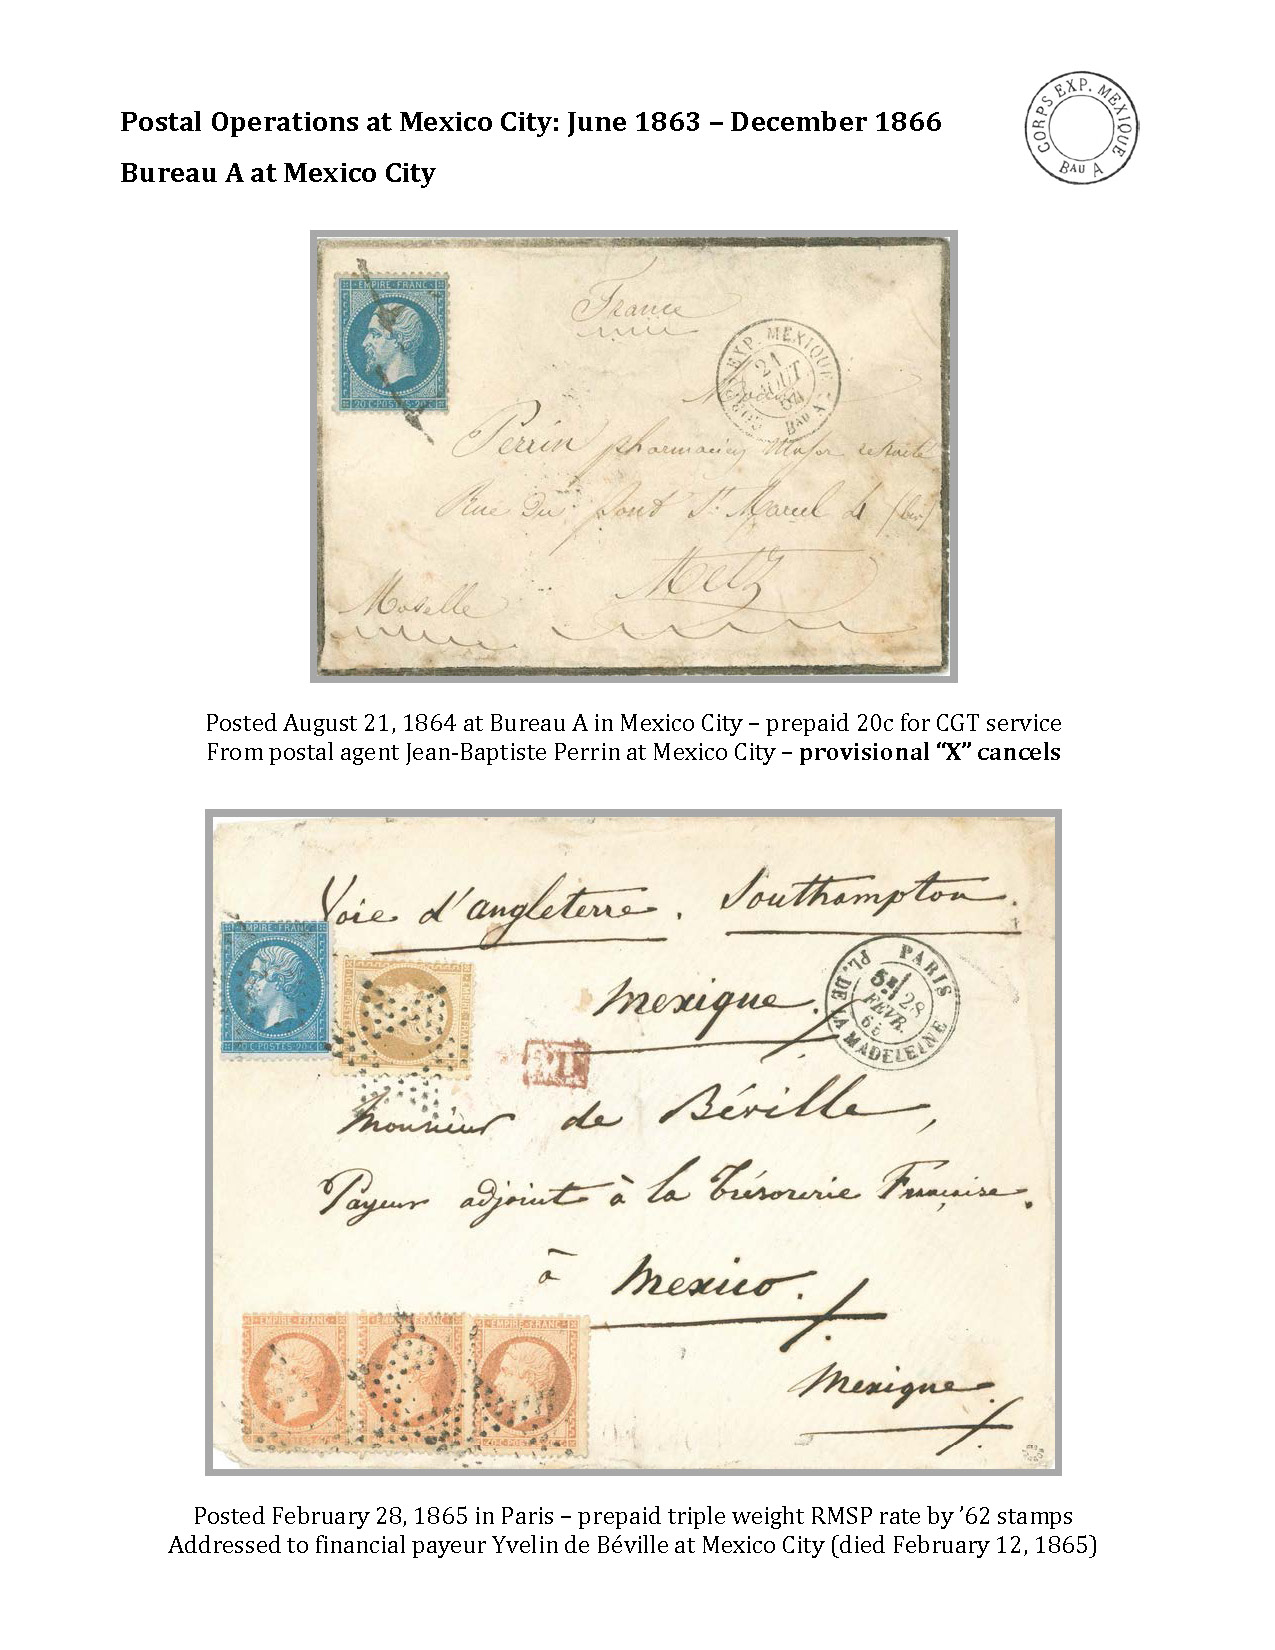 Postal Operations at Mexico City: June 1863 – December 1866
Bureau A at Mexico City
CORPS EXP. MEXIQUE
BAU A
EMPIRE FRANC
20 C POSTES 20 C
France
CORPS EXP. MEXIQUE
21
AOUT
64
BAU A
Perrin pharmacien Major retraité
Rue du pont St. Marcel 4 (bis)
Metz
Moselle
Posted August 21, 1864 at Bureau A in Mexico City – prepaid 20c for CGT service
From postal agent Jean-Baptiste Perrin at Mexico City – provisional “X” cancels
Voie d'angleterre. Southampton.
EMPIRE FRANC
20 C POSTES 20 C
PARIS
28
FEVR.
65
PL. DE LA MADELEINE
Mexique.
Monsieur de Béville,
Payeur adjoint à la Trésorerie Française.
à Mexico.
EMPIRE FRANC
EMPIRE FRANC
EMPIRE FRANC
Mexique
Posted February 28, 1865 in Paris – prepaid triple weight RMSP rate by ’62 stamps
Addressed to financial payeur Yvelin de Béville at Mexico City (died February 12, 1865)